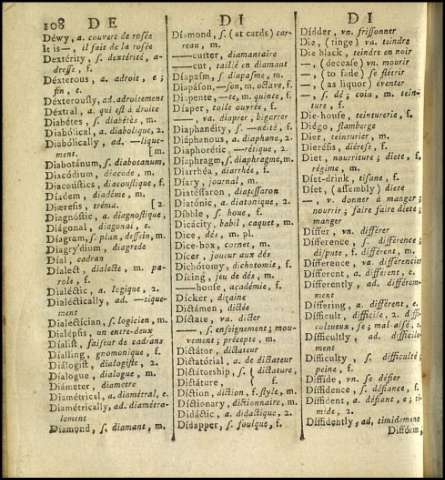 108 D E
D I
D I
Déwy, a. couvert de rosée
It is—, il fait de la rosée
Dextérity, s. dextérité, a-
dresse, f.
Déxterous, a. adroit, e;
fin, e.
Déxterously, ad. adroitement
Déxtral, a. qui est à droite
Diabétes, s. diabétès, m.
Diabólical, a. diabolique, 2.
Diabólically, ad. —lique-
ment
Diabotánum, s. diabotanum,
Diacódium, diacode, m.
Diacoústics, diacoustique, f.
Díadem, diadème, m.
Diæresis, tréma. [2.
Diagnóstic, a. diagnostique,
Diágonal, diagonal, e.
Díagram, s. plan, dessein, m.
Diagrýdium, diagrede
Díal, cadran
Díalect, dialecte, m. pa-
role, f.
Dialéctic, a. logique, 2.
Dialéctically, ad. —tique-
ment
Dialectícian, s. logicien, m.
Dialépsis, un entre-deux
Díalist, faiseur de cadrans
Díalling, gnomonique, f.
Diálogist, dialogiste, 2.
Díalogue, dialogue, m.
Diámeter, diametre
Diamétrical, a. diamétral, e.
Diamétrically, ad. diamétra-
lement
Díamond, s. diamant, m.
Díamond, s. (at cards) car-
reau, m.
—cutter, diamantaire
—cut, taillé en diamant
Díapasm, s. diapasme, m.
Diapáson,—son, m. octave, f.
Diapente,—te, m. quinte, f.
Díaper, toile ouvrée, f.
— va. diaprer, bigarrer
Diaphanéity, s. —néité, f.
Diáphanous, a. diaphane, 2.
Diaphorétic, —rétique, 2.
Díaphragm, s. diaphragme, m.
Diarrhéa, diarrhée, f.
Díary, journal, m.
Diastéssaron, diatessaron
Diatónic, a. diatonique, 2.
Díbble, s. houe, f.
Dicácity, babil, caquet, m.
Dice, dés, m. pl.
Dice-box, cornet, m.
Dícer, joueur aux dés
Dichótomy, dichotomie, f.
Dícing, jeu de dés, m.
—house, académie, f.
Dícker, dizaine
Dictámen, dictée
Díctate, va. dicter
—, s. enseignement; mou-
vement; précepte, m.
Dictátor, dictateur
Dictatórial, a. de dictateur
Dictátorship, s. { dictature,
Díctature, { f.
Díction, diction, f. style, m.
Díctionary, dictionnaire, m.
Didáctic, a. didactique, 2.
Dídapper, s. foulque, f.
Dídder, vn. frissonner
Die, (tinge) va. teindre
Die black, teindre en noir
—, (decease) vn. mourir
—, (to fade) se flétrir
—, (as liquor) éventer
—, s. dé; coin, m. tein-
ture, f.
Die-house, teinturerie, f.
Diégo, flamberge
Díer, teinturier, m.
Dieresis, diérese, f.
Díet, nourriture; diete, f.
régime, m.
Díet-drink, tisane, f.
Díet, (assembly) diete
—, v. donner à manger;
nourrir; faire faire diete;
manger
Díffer, vn. différer
Dífference, s. différence;
dispute, f. différent, m.
Dífference, va. différencier
Dífferent, a. différent, e.
Dífferently, ad. différem-
ment
Díffering, a. différent, e.
Dífficult, difficile, 2. diffi-
cultueux, se; mal-aisé, e.
Dífficultly, ad. difficile-
ment
Dífficulty, s. difficulté,
peine, f.
Diffíde, vn. se défier
Díffidence, s. défiance, f.
Díffident, a. défiant, e; ti-
mide, 2.
Díffidently, ad. timidement
Dífform,